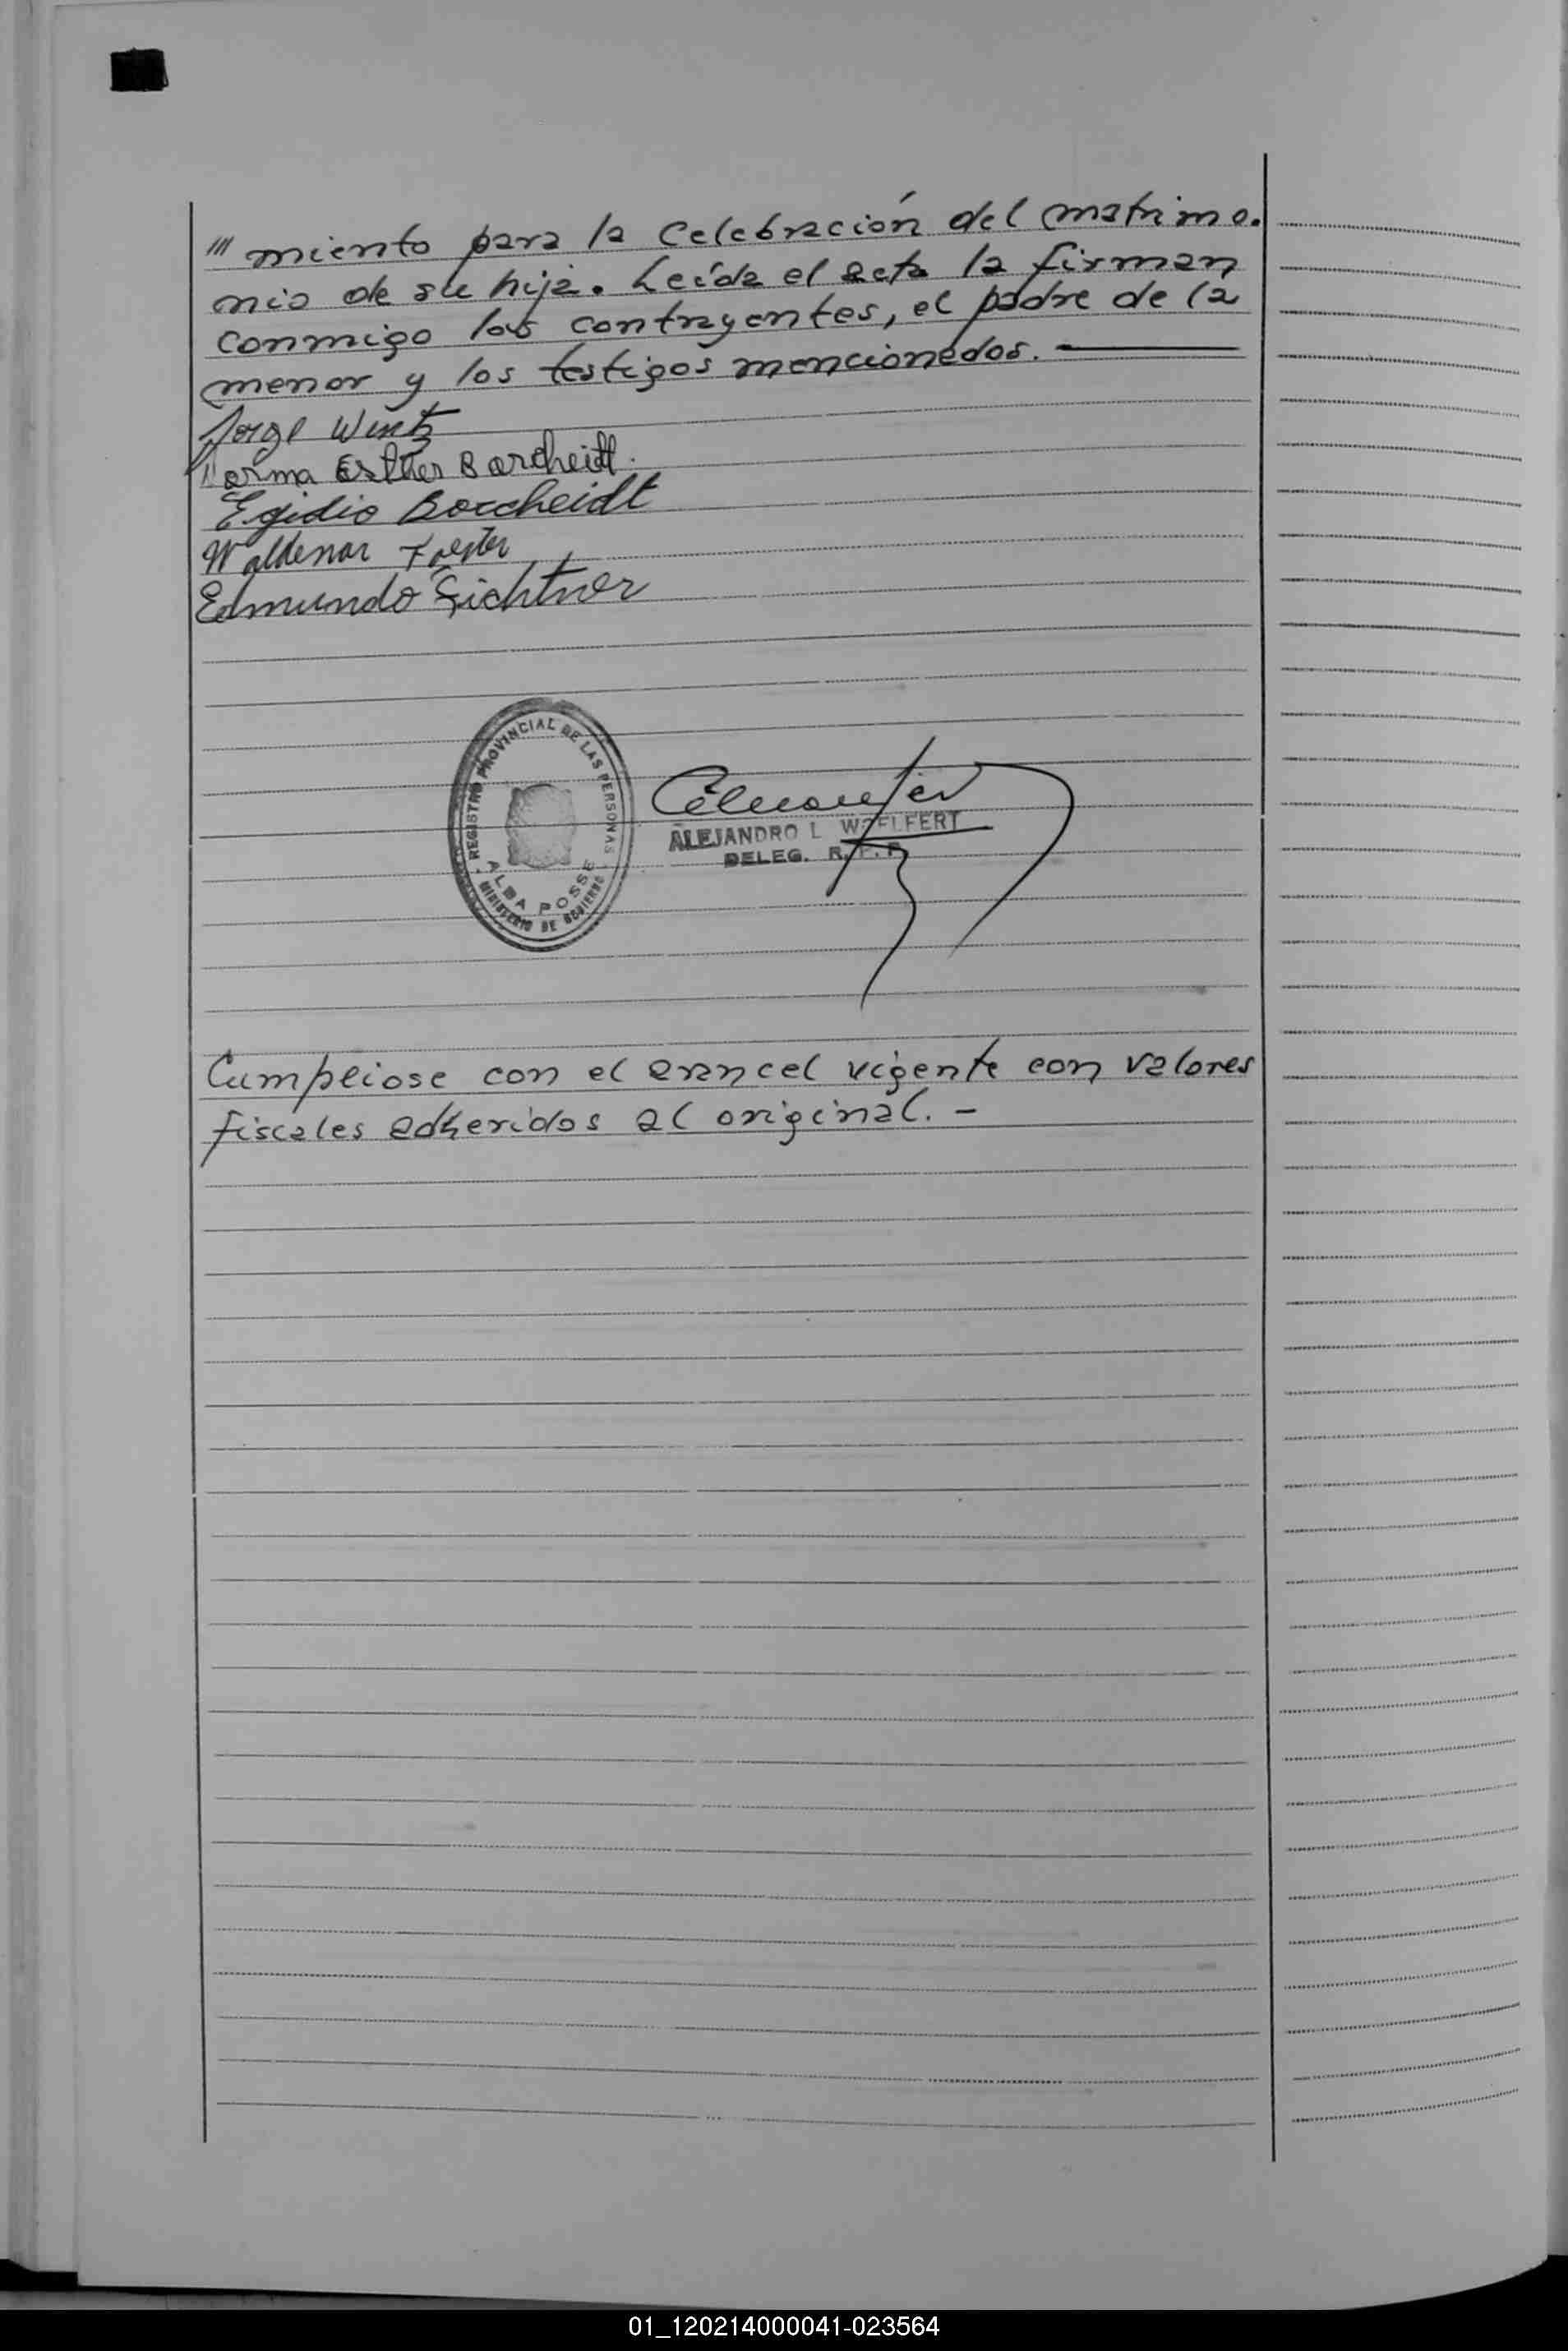 /// miento para la Celebración del matrimo.
nio de su hija. Leída el acta la firman
conmigo los contrayentes, el padre de la
menor y los testigos mencionados.
Jorge Wintz
Norma Esther Borcheidt.
Egidio Borcheidt
Waldemar Foester
Edmundo Fichtner
REGISTRO PROVINCIAL DE LAS PERSONAS
ALBA POSSE
MINISTERIO DE GOBIERNO
ALEJANDRO L WOELFERT
DELEG. R. P. P.
Cumpliose con el arancel vigente con valores
fiscales adheridos al original. -
01_120214000041-023564